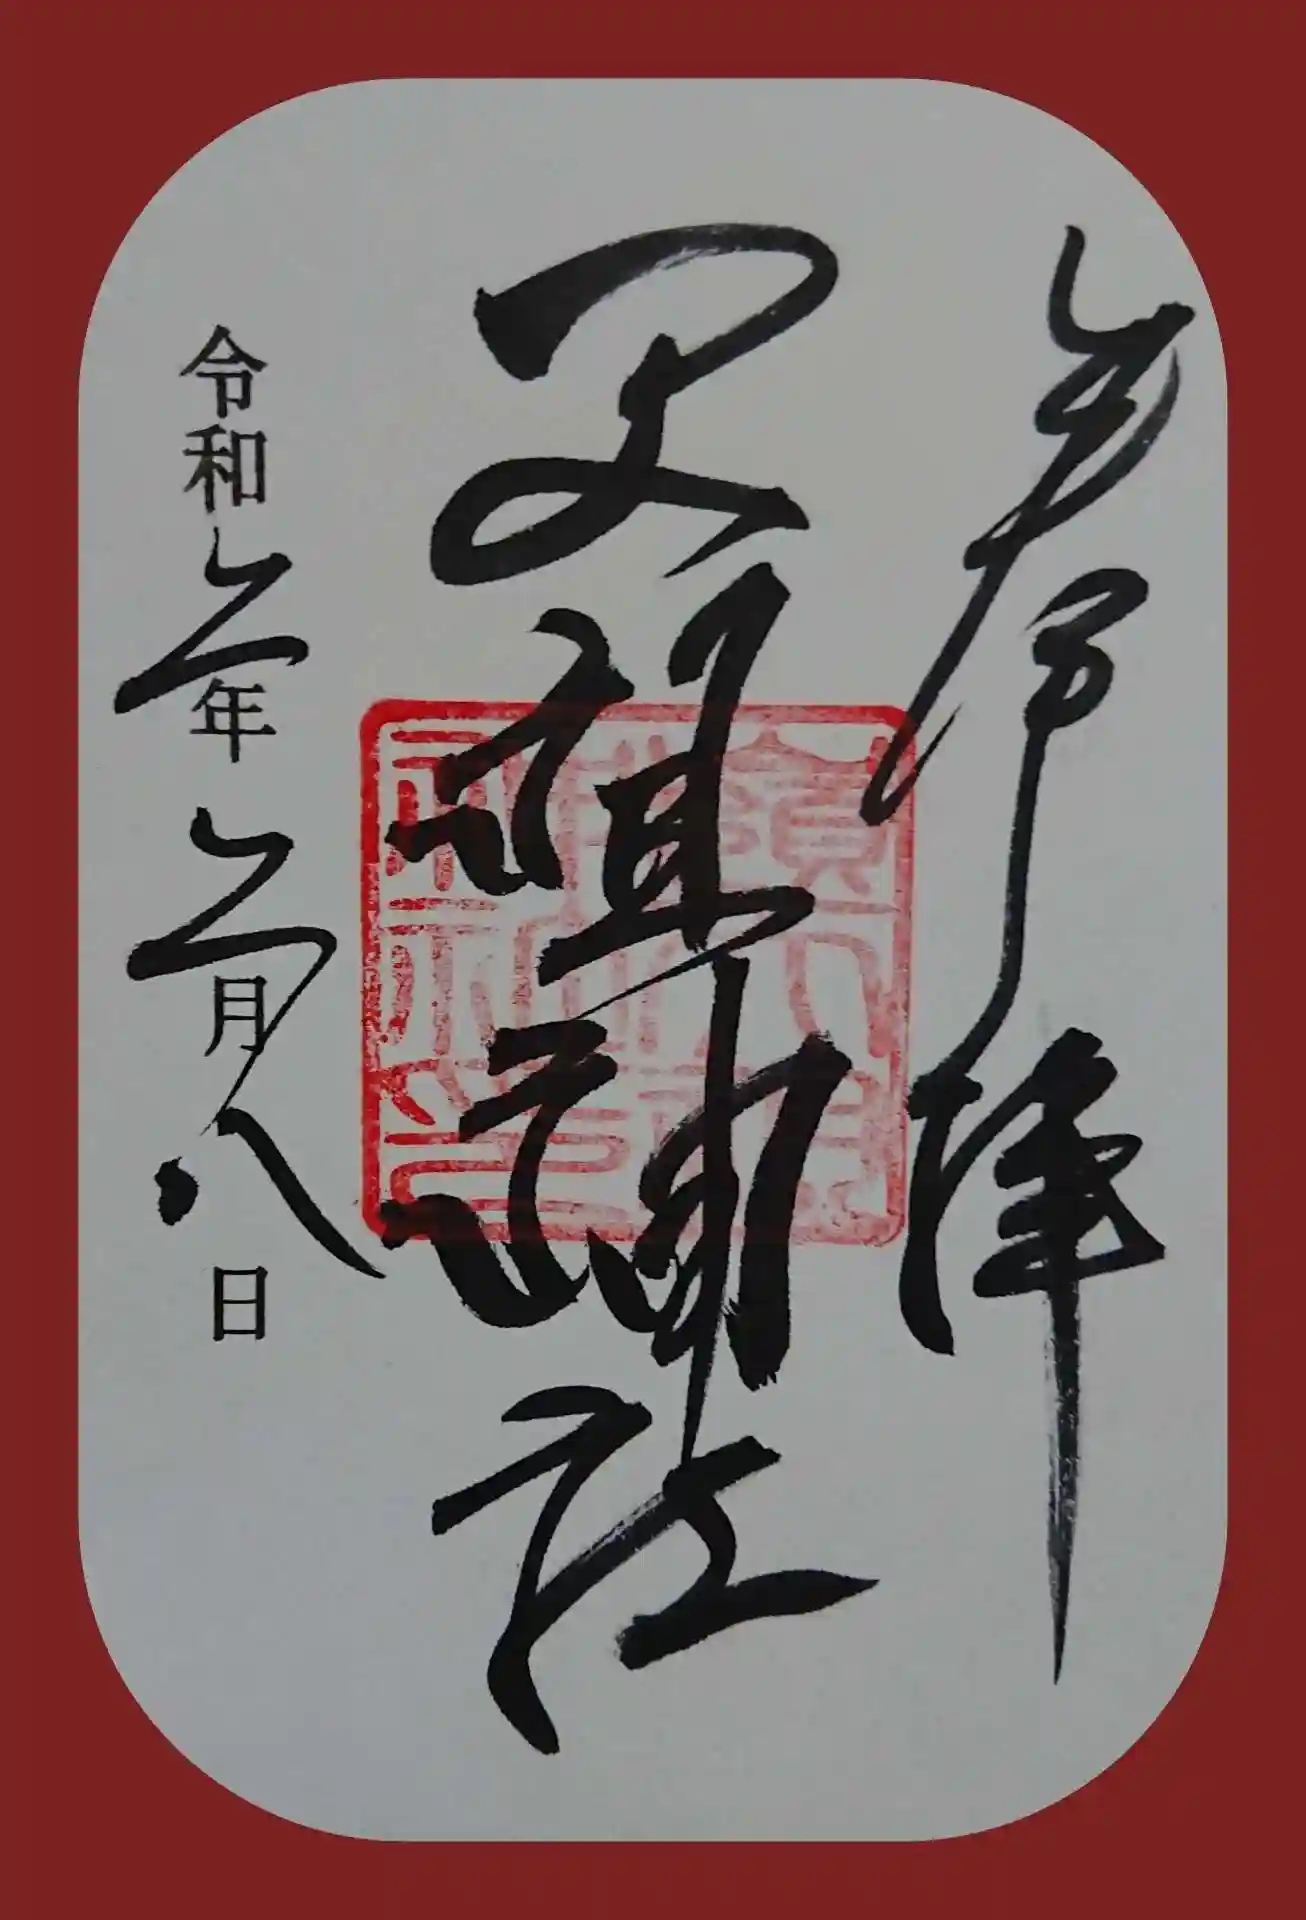 奉拝
天祖神社
令和五年五月八日